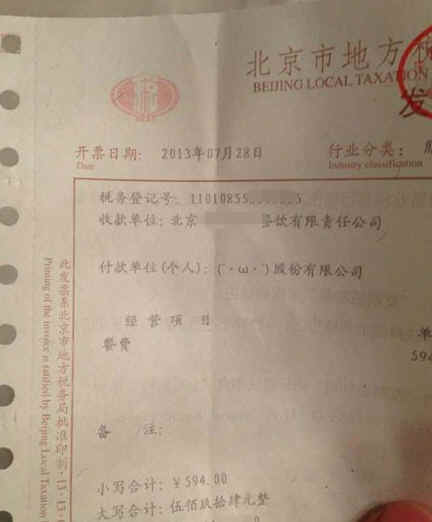 北京市地方税
BEIJING LOCAL TAXATION
发
开票日期: 2013年07月28日
行业分类:
Date
Industry classification
税务登记号: 11010855
收款单位: 北京 餐饮有限责任公司
付款单位(个人): (´・ω・`)股份有限公司
经营项目
单
餐费
594
备 注:
小写合计: ¥594.00
大写合计: 伍佰玖拾肆元整
此发票系北京市地方税务局批准印制·13·13·
Printing of the invoice is ratified by Beijing Local Taxation